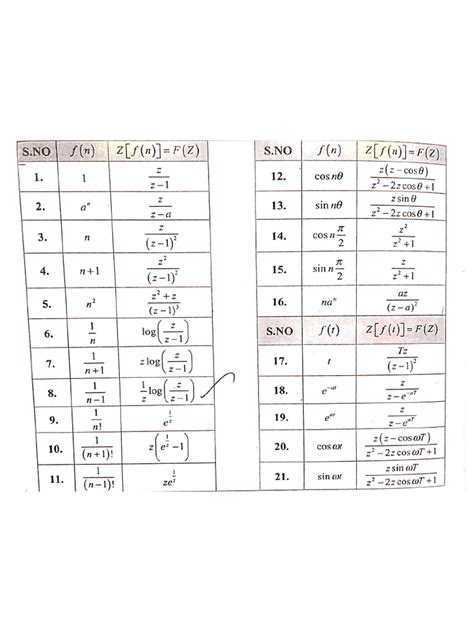 S.NO f(n) Z[f(n)]=F(Z)
1. 1 z/(z−1)
2. aⁿ z/(z−a)
3. n z/(z−1)²
4. n+1 z²/(z−1)²
5. n² (z²+z)/(z−1)³
6. 1/n log(z/(z−1))
7. 1/(n+1) z log(z/(z−1))
8. 1/(n−1) (1/z) log(z/(z−1))
9. 1/n! e^(1/z)
10. 1/(n+1)! z(e^(1/z)−1)
11. 1/(n−1)! ze^(1/z)
S.NO f(n) Z[f(n)]=F(Z)
12. cos nθ z(z−cosθ)/(z²−2z cosθ+1)
13. sin nθ z sinθ/(z²−2z cosθ+1)
14. cos n π/2 z²/(z²+1)
15. sin n π/2 z/(z²+1)
16. naⁿ az/(z−a)²
S.NO f(t) Z[f(t)]=F(Z)
17. t Tz/(z−1)²
18. e^(−at) z/(z−e^(−aT))
19. e^(at) z/(z−e^(aT))
20. cos ωt z(z−cos ωT)/(z²−2z cos ωT+1)
21. sin ωt z sin ωT/(z²−2z cos ωT+1)